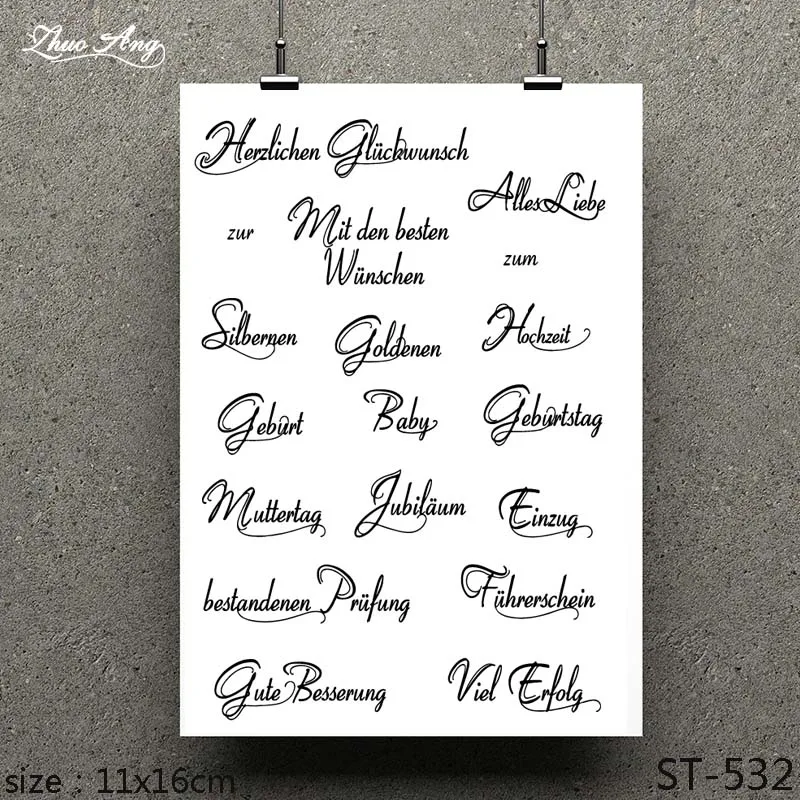 Zhuo Ang
Herzlichen Glückwunsch
Alles Liebe
zur
Mit den besten
Wünschen
zum
Silbernen
Goldenen
Hochzeit
Geburt
Baby
Geburtstag
Muttertag
Jubiläum
Einzug
bestandenen Prüfung
Führerschein
Gute Besserung
Viel Erfolg
size : 11x16cm
ST-532